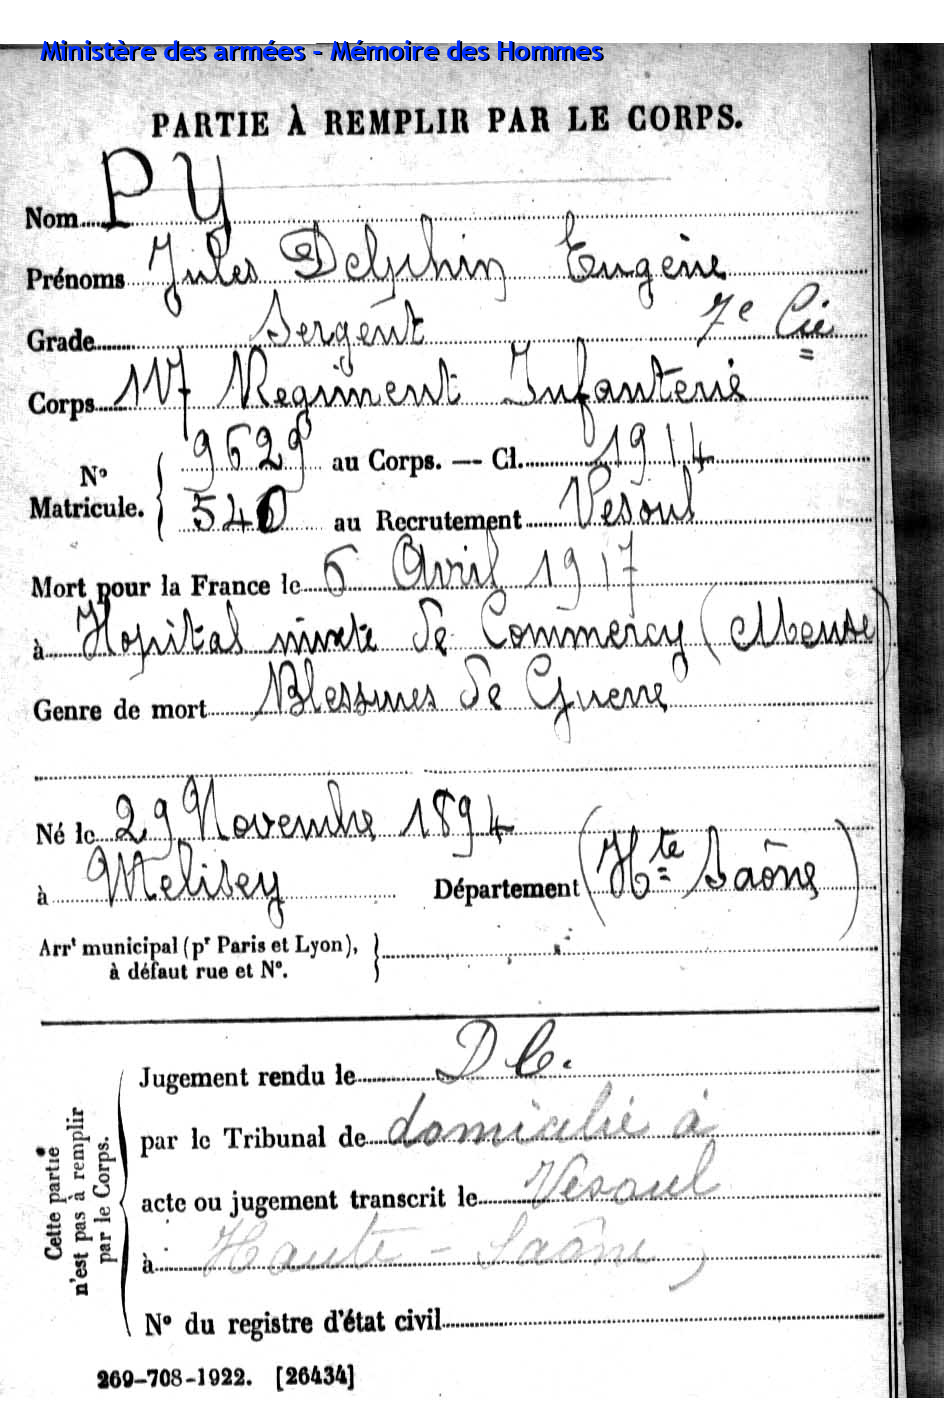 Ministère des armées - Mémoire des Hommes
PARTIE À REMPLIR PAR LE CORPS.
Nom PY
Prénoms Jules Delphin Eugène
Grade Sergent 7e Cie
Corps 117 Régiment Infanterie
N° Matricule. { 9629 au Corps. — Cl. 1914
540 au Recrutement Vesoul
Mort pour la France le 6 Avril 1917
à Hopital mixte de Commercy (Meuse)
Genre de mort Blessures de Guerre
Né le 29 Novembre 1894
à Melisey Département (Hte Saône)
Arrt municipal (pr Paris et Lyon),
à défaut rue et N°.
Cette partie n'est pas à remplir par le Corps.
Jugement rendu le D C.
par le Tribunal de domicilié à
acte ou jugement transcrit le Vesoul
à Haute-Saône
N° du registre d'état civil
269-708-1922. [26434]